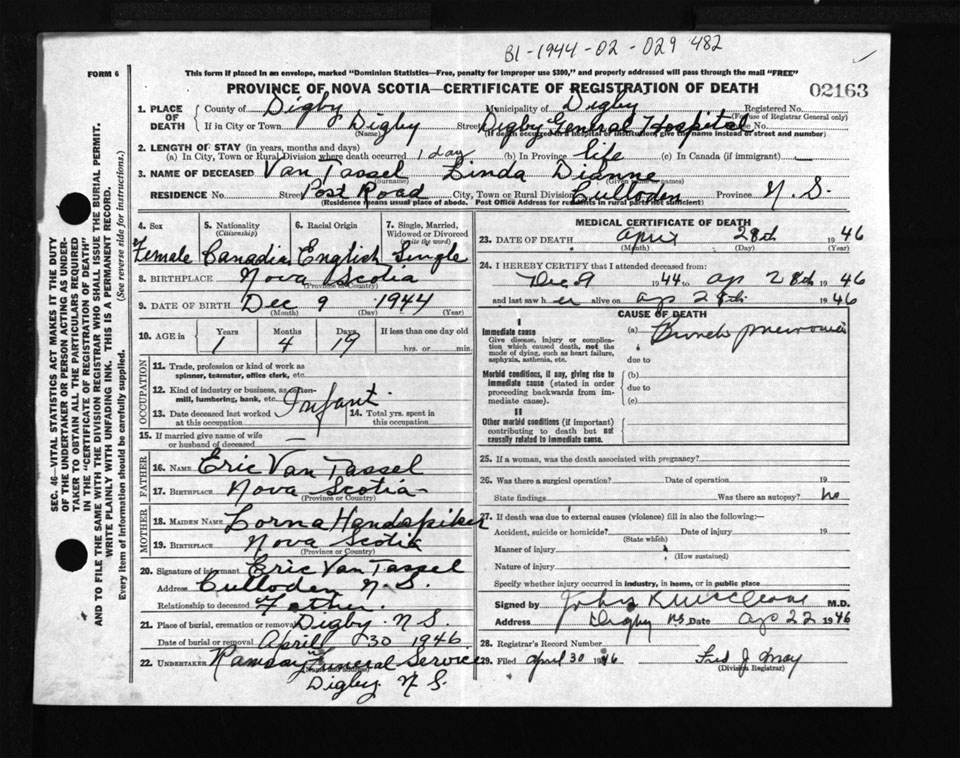 B1-1944-02-029482
FORM 6
This form if placed in an envelope, marked "Dominion Statistics—Free, penalty for improper use $300," and properly addressed will pass through the mail "FREE"
PROVINCE OF NOVA SCOTIA—CERTIFICATE OF REGISTRATION OF DEATH
02163
SEC. 46—VITAL STATISTICS ACT MAKES IT THE DUTY
OF THE UNDERTAKER OR PERSON ACTING AS UNDER-
TAKER TO OBTAIN ALL THE PARTICULARS REQUIRED
IN THE "CERTIFICATE OF REGISTRATION OF DEATH"
AND TO FILE THE SAME WITH THE DIVISION REGISTRAR WHO SHALL ISSUE THE BURIAL PERMIT.
WRITE PLAINLY WITH UNFADING INK. THIS IS A PERMANENT RECORD.
Every item of information should be carefully supplied. (See reverse side for instructions.)
1. PLACE OF DEATH County of Digby Municipality of Digby Registered No.
(For use of Registrar General only)
If in City or Town Digby Street Digby General Hospital No.
(Name) (If death occurred in hospital or institution, give the name instead of street and number)
2. LENGTH OF STAY (in years, months and days)
(a) In City, Town or Rural Division where death occurred 1 day (b) In Province life (c) In Canada (if immigrant) —
3. NAME OF DECEASED Van Tassel Linda Dianne
(Surname) (Given name or names)
RESIDENCE No. Street Post Road City, Town or Rural Division Culloden Province N.S.
(Residence means usual place of abode. Post Office Address for residents in rural parts not sufficient)
4. Sex 5. Nationality (Citizenship) 6. Racial Origin 7. Single, Married, Widowed or Divorced (write the word)
Female Canadian English Single
8. BIRTHPLACE Nova Scotia
(Province or Country)
9. DATE OF BIRTH Dec 9 1944
(Month) (Day) (Year)
10. AGE in Years Months Days If less than one day old
1 4 19 hrs. or min.
OCCUPATION
11. Trade, profession or kind of work as
spinner, teamster, office clerk, etc.
12. Kind of industry or business, as
mill, lumbering, bank, etc. Infant
13. Date deceased last worked at this occupation 14. Total yrs. spent in this occupation
15. If married give name of wife or husband of deceased —
FATHER
16. NAME Eric Van Tassel
17. BIRTHPLACE Nova Scotia
(Province or Country)
MOTHER
18. MAIDEN NAME Lorna Handspiker
19. BIRTHPLACE Nova Scotia
(Province or Country)
20. Signature of informant Eric Van Tassel
Address Culloden N.S.
Relationship to deceased Father.
21. Place of burial, cremation or removal Digby N.S.
Date of burial or removal April 30 1946
22. UNDERTAKER Ramsay Funeral Service
Digby N.S.
MEDICAL CERTIFICATE OF DEATH
23. DATE OF DEATH April 28th 1946
(Month) (Day)
24. I HEREBY CERTIFY that I attended deceased from:
Dec 9 1944 to ap 28th 1946
and last saw her alive on ap 28th 1946
CAUSE OF DEATH
I
Immediate cause (a) Broncho pneumonia
Give disease, injury or complication which caused death, not the mode of dying, such as heart failure, asphyxia, asthenia, etc.
due to
Morbid conditions, if any, giving rise to immediate cause (stated in order proceeding backwards from immediate cause). (b)
due to
(c)
II
Other morbid conditions (if important) contributing to death but not causally related to immediate cause.
25. If a woman, was the death associated with pregnancy?
26. Was there a surgical operation? Date of operation 19
State findings Was there an autopsy? no
27. If death was due to external causes (violence) fill in also the following:—
Accident, suicide or homicide? Date of injury 19
(State which)
Manner of injury
(How sustained)
Nature of injury
Specify whether injury occurred in industry, in home, or in public place
Signed by John M.D.
Address Digby NS Date ap 22 1946
28. Registrar's Record Number
29. Filed April 30 1946 Fred J.
(Division Registrar)